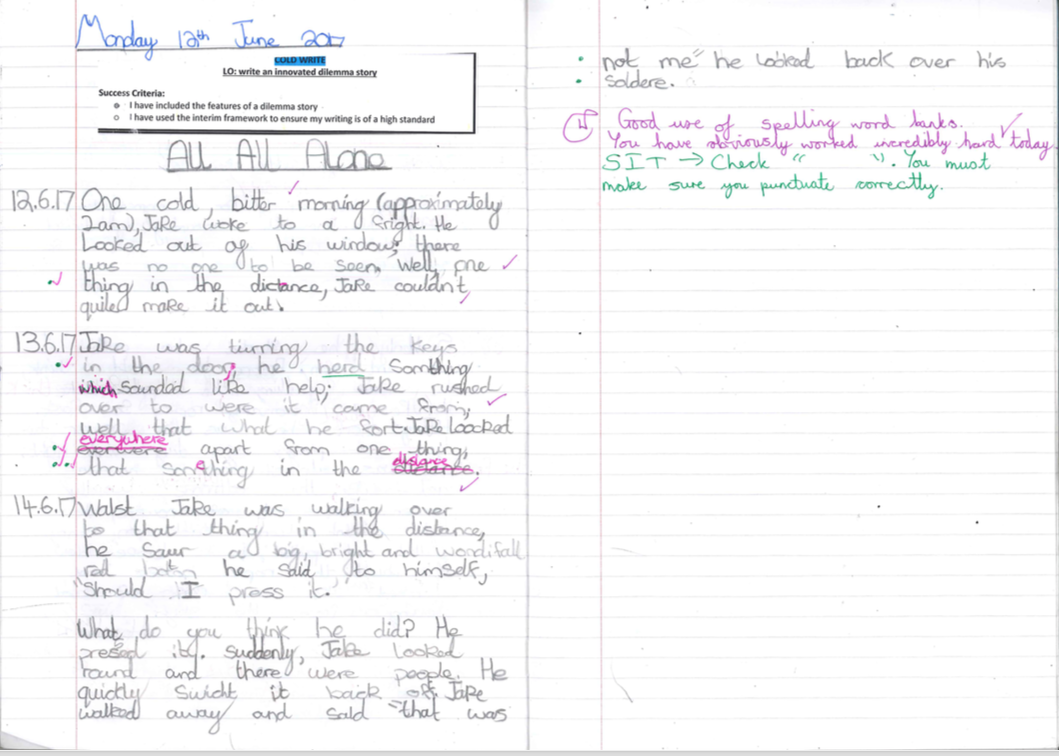 Monday 12th June 2017
COLD WRITE
LO: write an innovated dilemma story
Success Criteria:
o I have included the features of a dilemma story
o I have used the interim framework to ensure my writing is of a high standard
All All Alone
12.6.17 One cold, bitter morning (approximately
2am), Jake woke to a fright. He
Looked out of his window; there
was no one to be seen, Well, one
thing in the dictance, Jake couldn't
quiled make it out.
13.6.17 Jake was turning the keys
in the door, he herd Somthing
which sounded like help; Jake rushed
over to were it came from,
well that what he fort. Jake loocked
everywhere
apart from one thing,
that somehing in the distance.
14.6.17 Walst Jake was walking over
to that thing in the distance,
he Saur a big, bright and wondifall
red boten he said to himself,
"Should I press it."
What do you think he did? He
presed it. Suddenly, Jake looked
round and there were people. He
quickly Swicht it back off, Jake
walked away and said "that was
not me" he looked back over his
soldere.
Good use of spelling word banks.
You have obviously worked incredibly hard today
SIT → Check " ". You must
make sure you punctuate correctly.